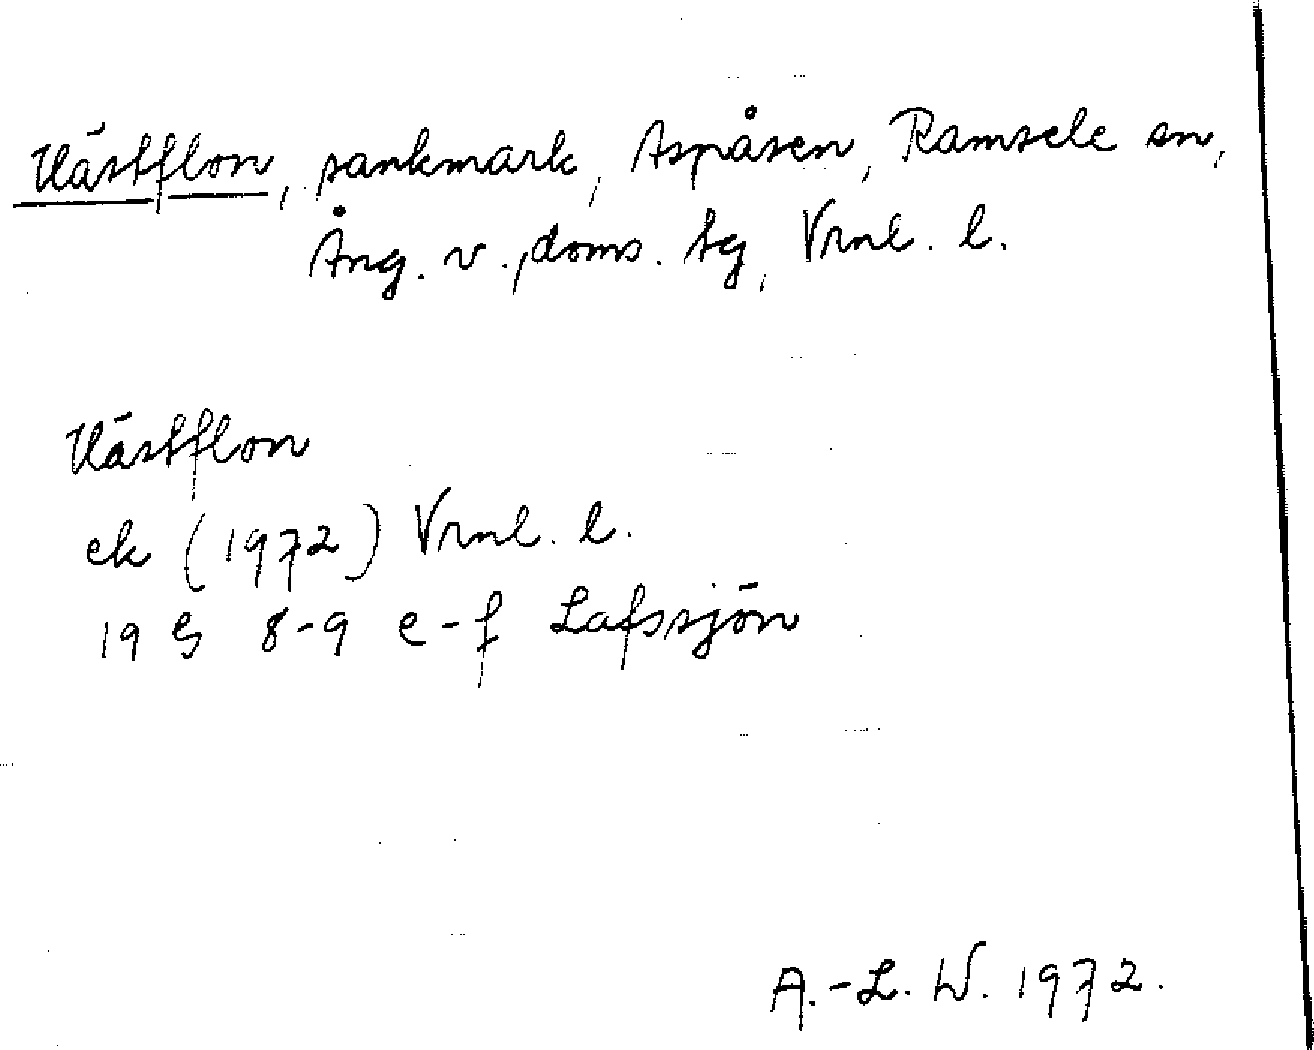 Västflon, sankmark, Aspåsen, Ramsele sn,
Ång. v., doms. tg, Vrnl. l.
Västflon
ek (1972) Vrnl. l.
19 G 8-9 e-f Lafssjön
A.-L. W. 1972.